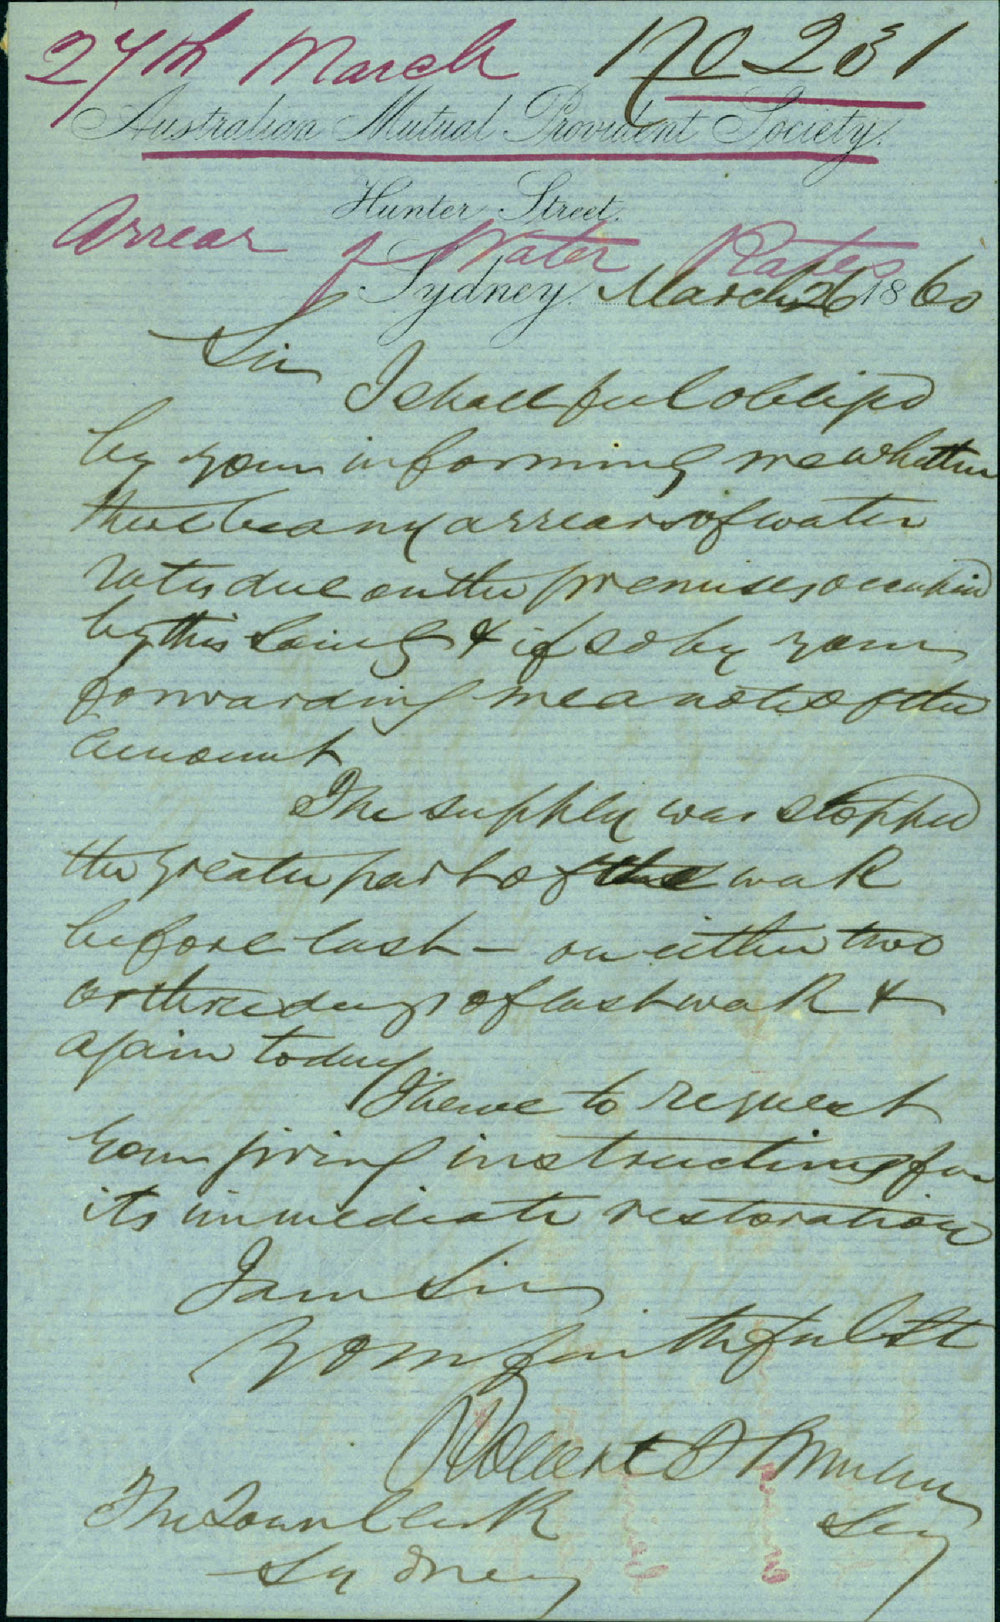 27th March No 231
Australian Mutual Provident Society.
Hunter Street.
Arrear of Water Rates
Sydney. March 26 1860
Sir
I shall feel obliged
by your informing me whether
there be any arrears of water
rates due on the premises occupied
by this Society & if so by your
forwarding me a note of the
amount
The supply was stopped
the greater part of the week
before last — on either two
or three days of last week &
again today
I have to request
your giving instructions for
its immediate restoration
I am Sir
Your faithful St
Robert
Secy
The Town Clerk
Sydney